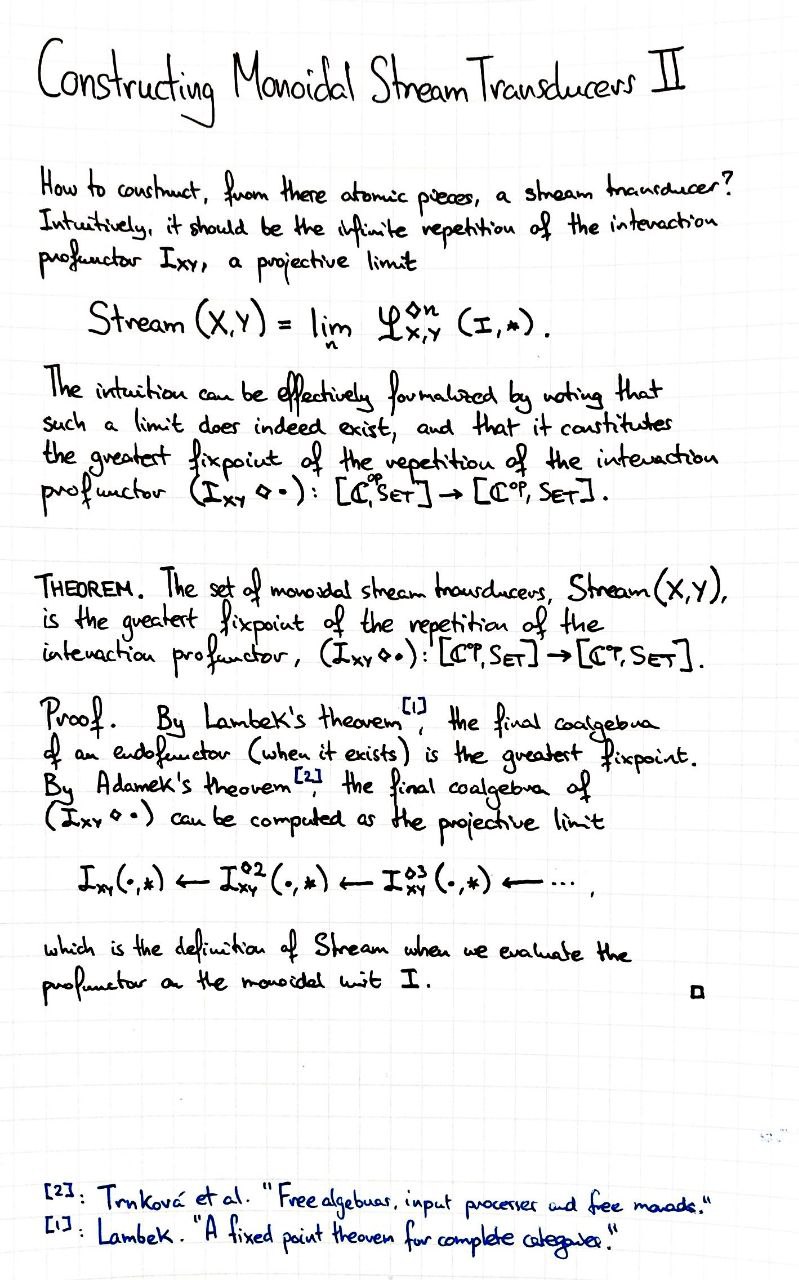 Constructing Monoidal Stream Transducers II
How to construct, from there atomic pieces, a stream transducer?
Intuitively, it should be the infinite repetition of the interaction
profunctor I_XY, a projective limit
Stream (X,Y) = lim_n φ^◇n_X,Y (I,*).
The intuition can be effectively formalized by noting that
such a limit does indeed exist, and that it constitutes
the greatest fixpoint of the repetition of the interaction
profunctor (I_XY ◇ •): [ℂ^op, SET] → [ℂ^op, SET].
THEOREM. The set of monoidal stream transducers, Stream(X,Y),
is the greatest fixpoint of the repetition of the
interaction profunctor, (I_XY ◇ •): [ℂ^op, SET] → [ℂ^op, SET].
Proof. By Lambek's theorem [1], the final coalgebra
of an endofunctor (when it exists) is the greatest fixpoint.
By Adamek's theorem [2], the final coalgebra of
(I_XY ◇ •) can be computed as the projective limit
I_XY(•,*) ← I^◇2_XY(•,*) ← I^◇3_XY(•,*) ← ... ,
which is the definition of Stream when we evaluate the
profunctor on the monoidal unit I. □
[2]: Trnková et al. "Free algebras, input processes and free monads."
[1]: Lambek. "A fixed point theorem for complete categories."